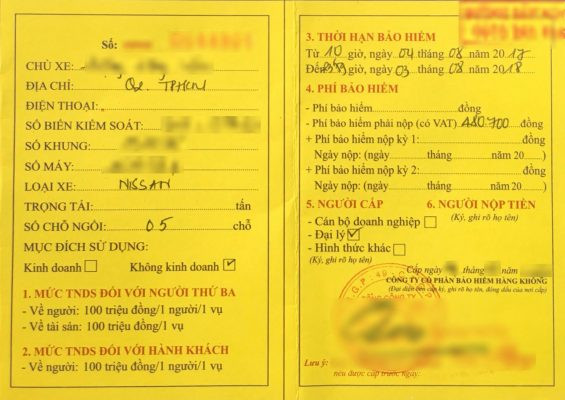 Số:
CHỦ XE:
ĐỊA CHỈ: Q2. TPHCM
ĐIỆN THOẠI:
SỐ BIỂN KIỂM SOÁT:
SỐ KHUNG:
SỐ MÁY:
LOẠI XE: NISSAN
TRỌNG TẢI: tấn
SỐ CHỖ NGỒI: 05 chỗ
MỤC ĐÍCH SỬ DỤNG:
Kinh doanh ☐ Không kinh doanh ☑
1. MỨC TNDS ĐỐI VỚI NGƯỜI THỨ BA
- Về người: 100 triệu đồng/1 người/1 vụ
- Về tài sản: 100 triệu đồng/1 vụ
2. MỨC TNDS ĐỐI VỚI HÀNH KHÁCH
- Về người: 100 triệu đồng/1 người/1 vụ
3. THỜI HẠN BẢO HIỂM
Từ 10 giờ, ngày 04 tháng 08 năm 2017
Đến giờ, ngày 03 tháng 08 năm 2018
4. PHÍ BẢO HIỂM
- Phí bảo hiểm đồng
- Phí bảo hiểm phải nộp (có VAT) 480.700 đồng
+ Phí bảo hiểm nộp kỳ 1: đồng
Ngày nộp: (ngày tháng năm 20 )
+ Phí bảo hiểm nộp kỳ 2: đồng
Ngày nộp: (ngày tháng năm 20 )
5. NGƯỜI CẤP 6. NGƯỜI NỘP TIỀN
- Cán bộ doanh nghiệp ☐ (Ký, ghi rõ họ tên)
- Đại lý ☑
- Hình thức khác ☐
(Ký, ghi rõ họ tên)
Cấp ngày
CÔNG TY CỔ PHẦN BẢO HIỂM HÀNG KHÔNG
(Đại diện bên cấp ký, ghi rõ họ tên, đóng dấu của nơi cấp)
Lưu ý:
nếu được cấp trước ngày: